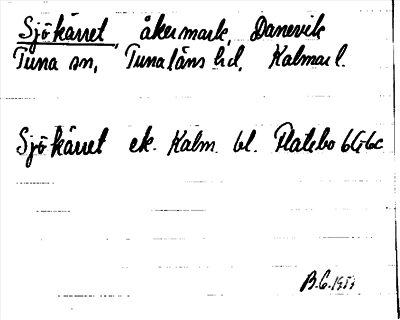 Sjökärret, åkermark, Danevik
Tuna sn, Tunaläns hd, Kalmar l.
Sjökärret ek. Kalm. bl. Platsbo 6G6c
B.G. 1959